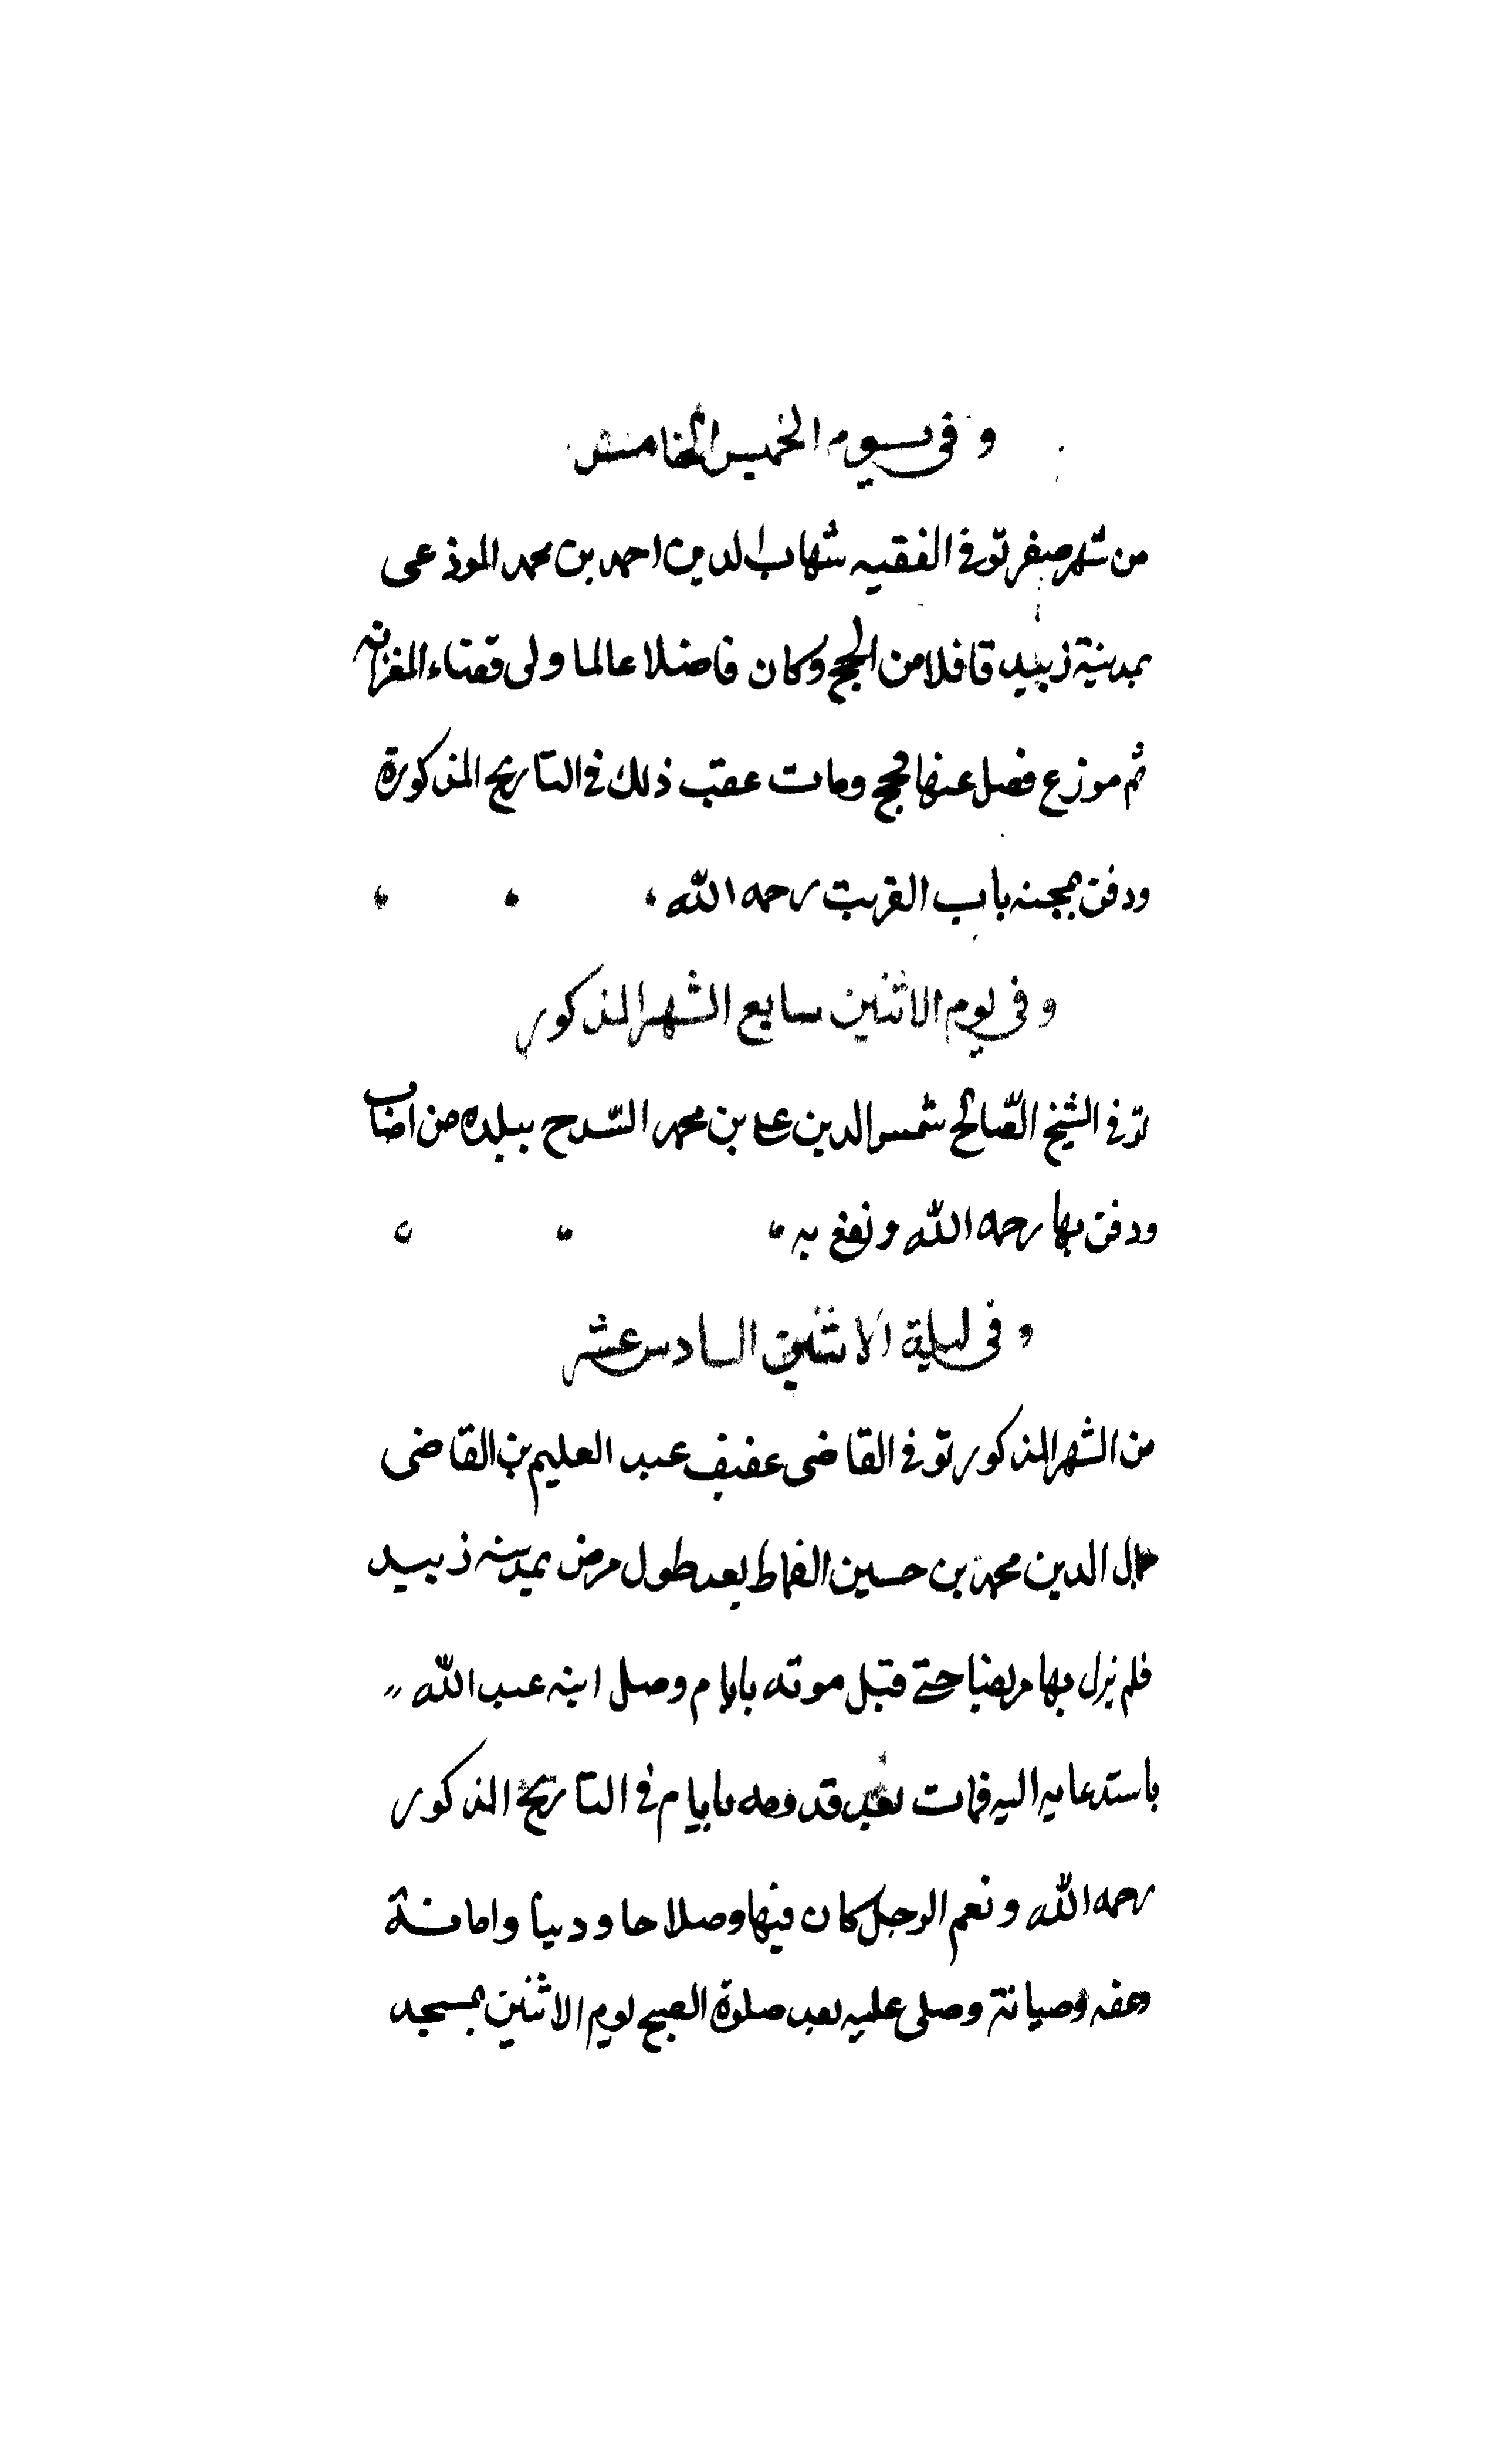 و فى يوم الخميس الخامس
من شهر صفر توفى الفقيه شهاب الدين احمد بن محمد الموذعى
بمدينة زبيد قافلا من الحج وكان فاضلا عالما ولى قضاء
ثم موزع فصل عنها فحج ومات عقب ذلك فى التاريخ المذكورة
ودفن بمجنه باب القريب رحمه الله
و فى يوم الاثنين سابع الشهر المذكور
توفى الشيخ الصّالح شمس الدين على بن محمد السّدح ببلده من اصاب
ودفن بها رحمه الله ونفع به
و فى ليلة الاثنين السادس عشر
من الشهر المذكور توفى القاضى عفيف عبد العليم بن القاضى
جمال الدين محمد بن حسين القماط بعد طول مرض بمدينه زبيد
فلم يزل بها مريضا حتى قبل موته بايام وصل ابنه عبد الله
باستدعايه اليه فمات بعد قدومه بايام فى التاريخ المذكور
رحمه الله ونعم الرجل كان فيها وصلاحا ودينا وامانة
وعفه وصيانة وصلى عليه بعد صلوة الصبح ليوم الاثنين بمسجد